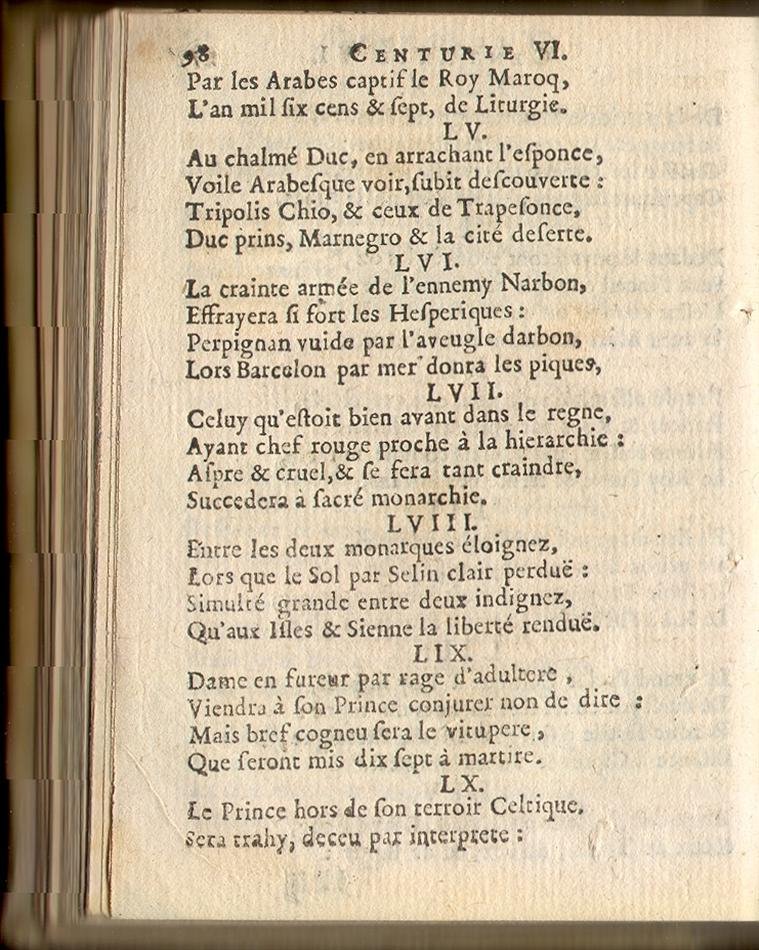 98 CENTURIE VI.
Par les Arabes captif le Roy Maroq,
L'an mil ſix cens & ſept, de Liturgie.
LV.
Au chalmé Duc, en arrachant l'eſponce,
Voile Arabeſque voir, ſubit deſcouverte :
Tripolis Chio, & ceux de Trapeſonce,
Duc prins, Marnegro & la cité deſerte.
LVI.
La crainte armée de l'ennemy Narbon,
Effrayera ſi fort les Heſperiques :
Perpignan vuide par l'aveugle darbon,
Lors Barcelon par mer donra les piques,
LVII.
Celuy qu'eſtoit bien avant dans le regne,
Ayant chef rouge proche à la hierarchie :
Aſpre & cruel, & ſe fera tant craindre,
Succedera à ſacré monarchie.
LVIII.
Entre les deux monarques éloignez,
Lors que le Sol par Selin clair perduë :
Simulté grande entre deux indignez,
Qu'aux Iſles & Sienne la liberté renduë.
LIX.
Dame en fureur par rage d'adultere ,
Viendra à ſon Prince conjurer non de dire :
Mais bref cogneu ſera le vitupere ,
Que ſeront mis dix ſept à martire.
LX.
Le Prince hors de ſon terroir Celtique,
Sera trahy, deceu par interprete :